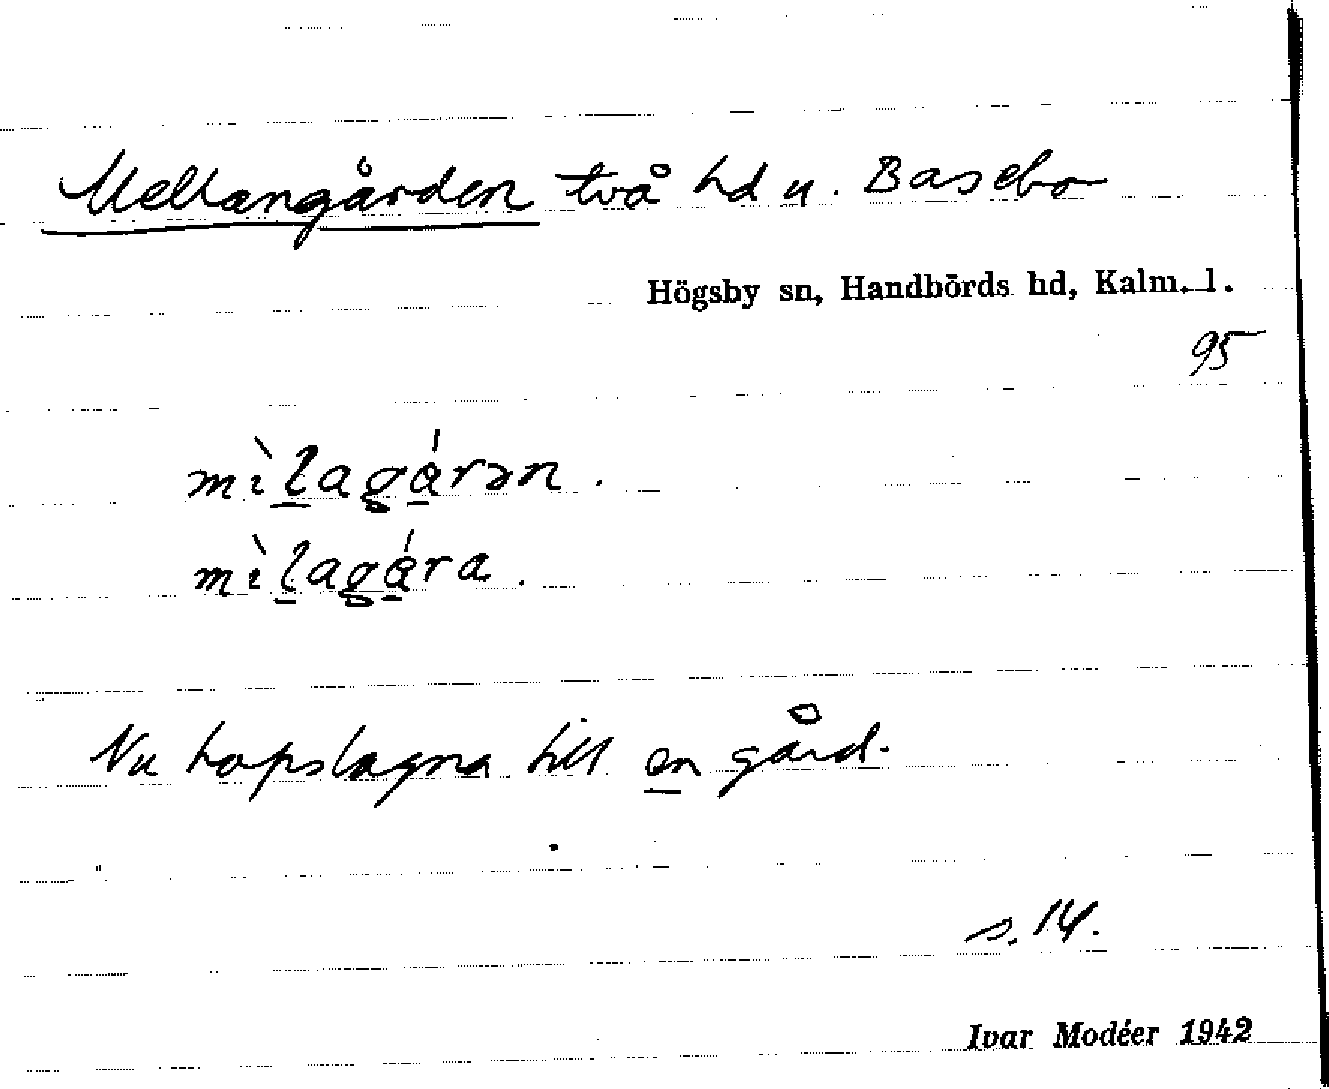 Mellangården två hd u. Basebo
Högsby sn, Handbörds hd, Kalm. l.
95
mìlagárən.
mìlagára.
Nu hopslagna till en gård.
s. 14.
Ivar Modéer 1942